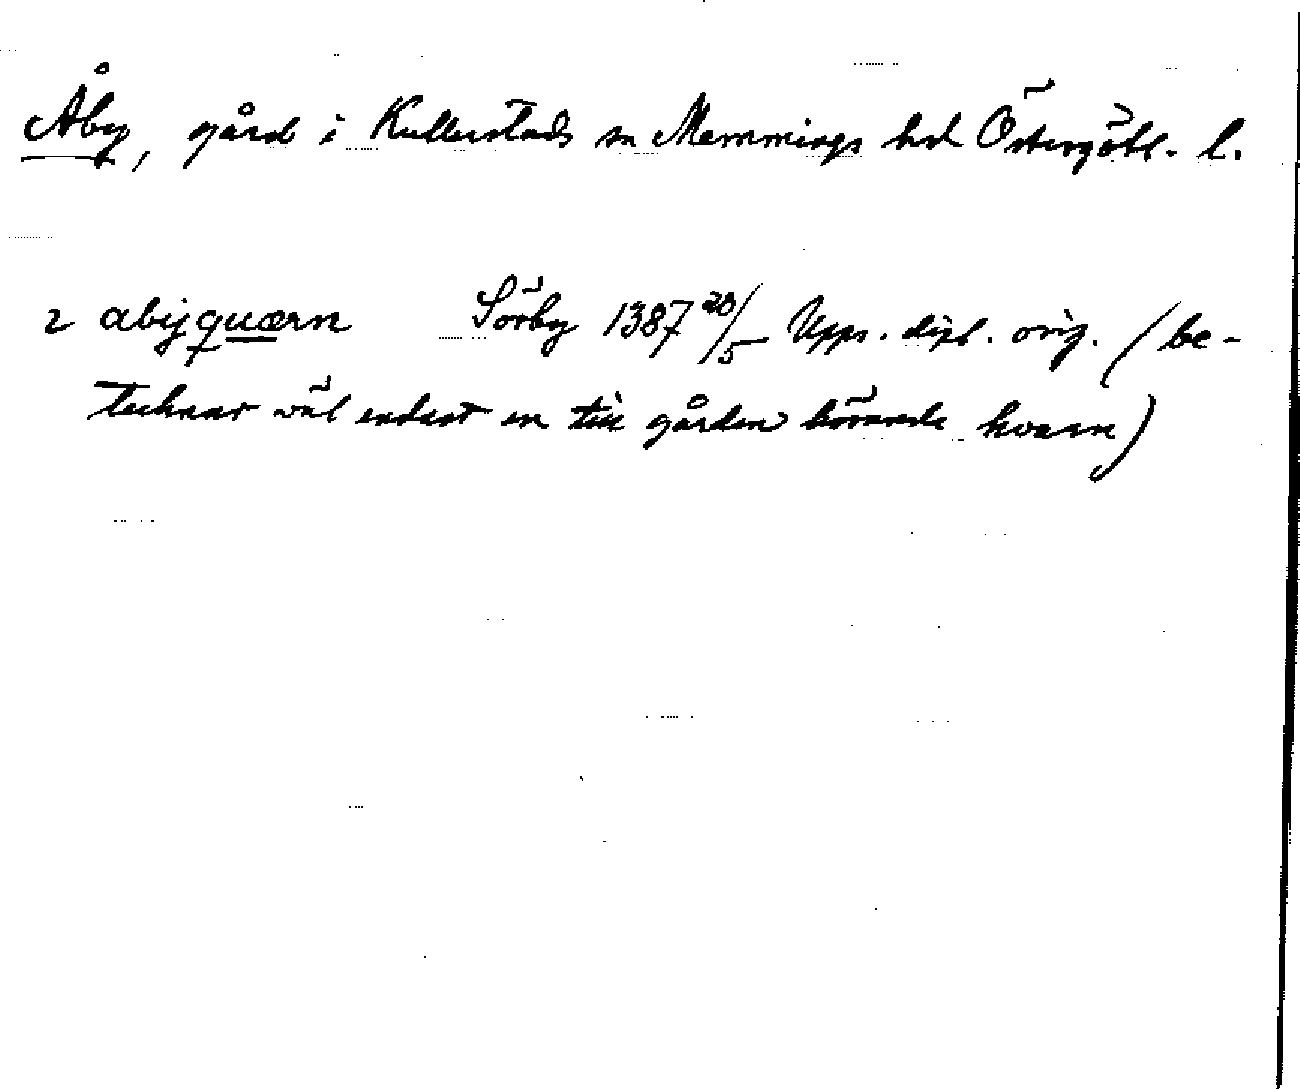 Åby, gård i Kullerstads sn Memmings hd Östergötl. l.
2 abyquærn Sörby 1387 20/5 Upps. dipl. orig. (be-
tecknar väl endast en till gården hörande kvarn)